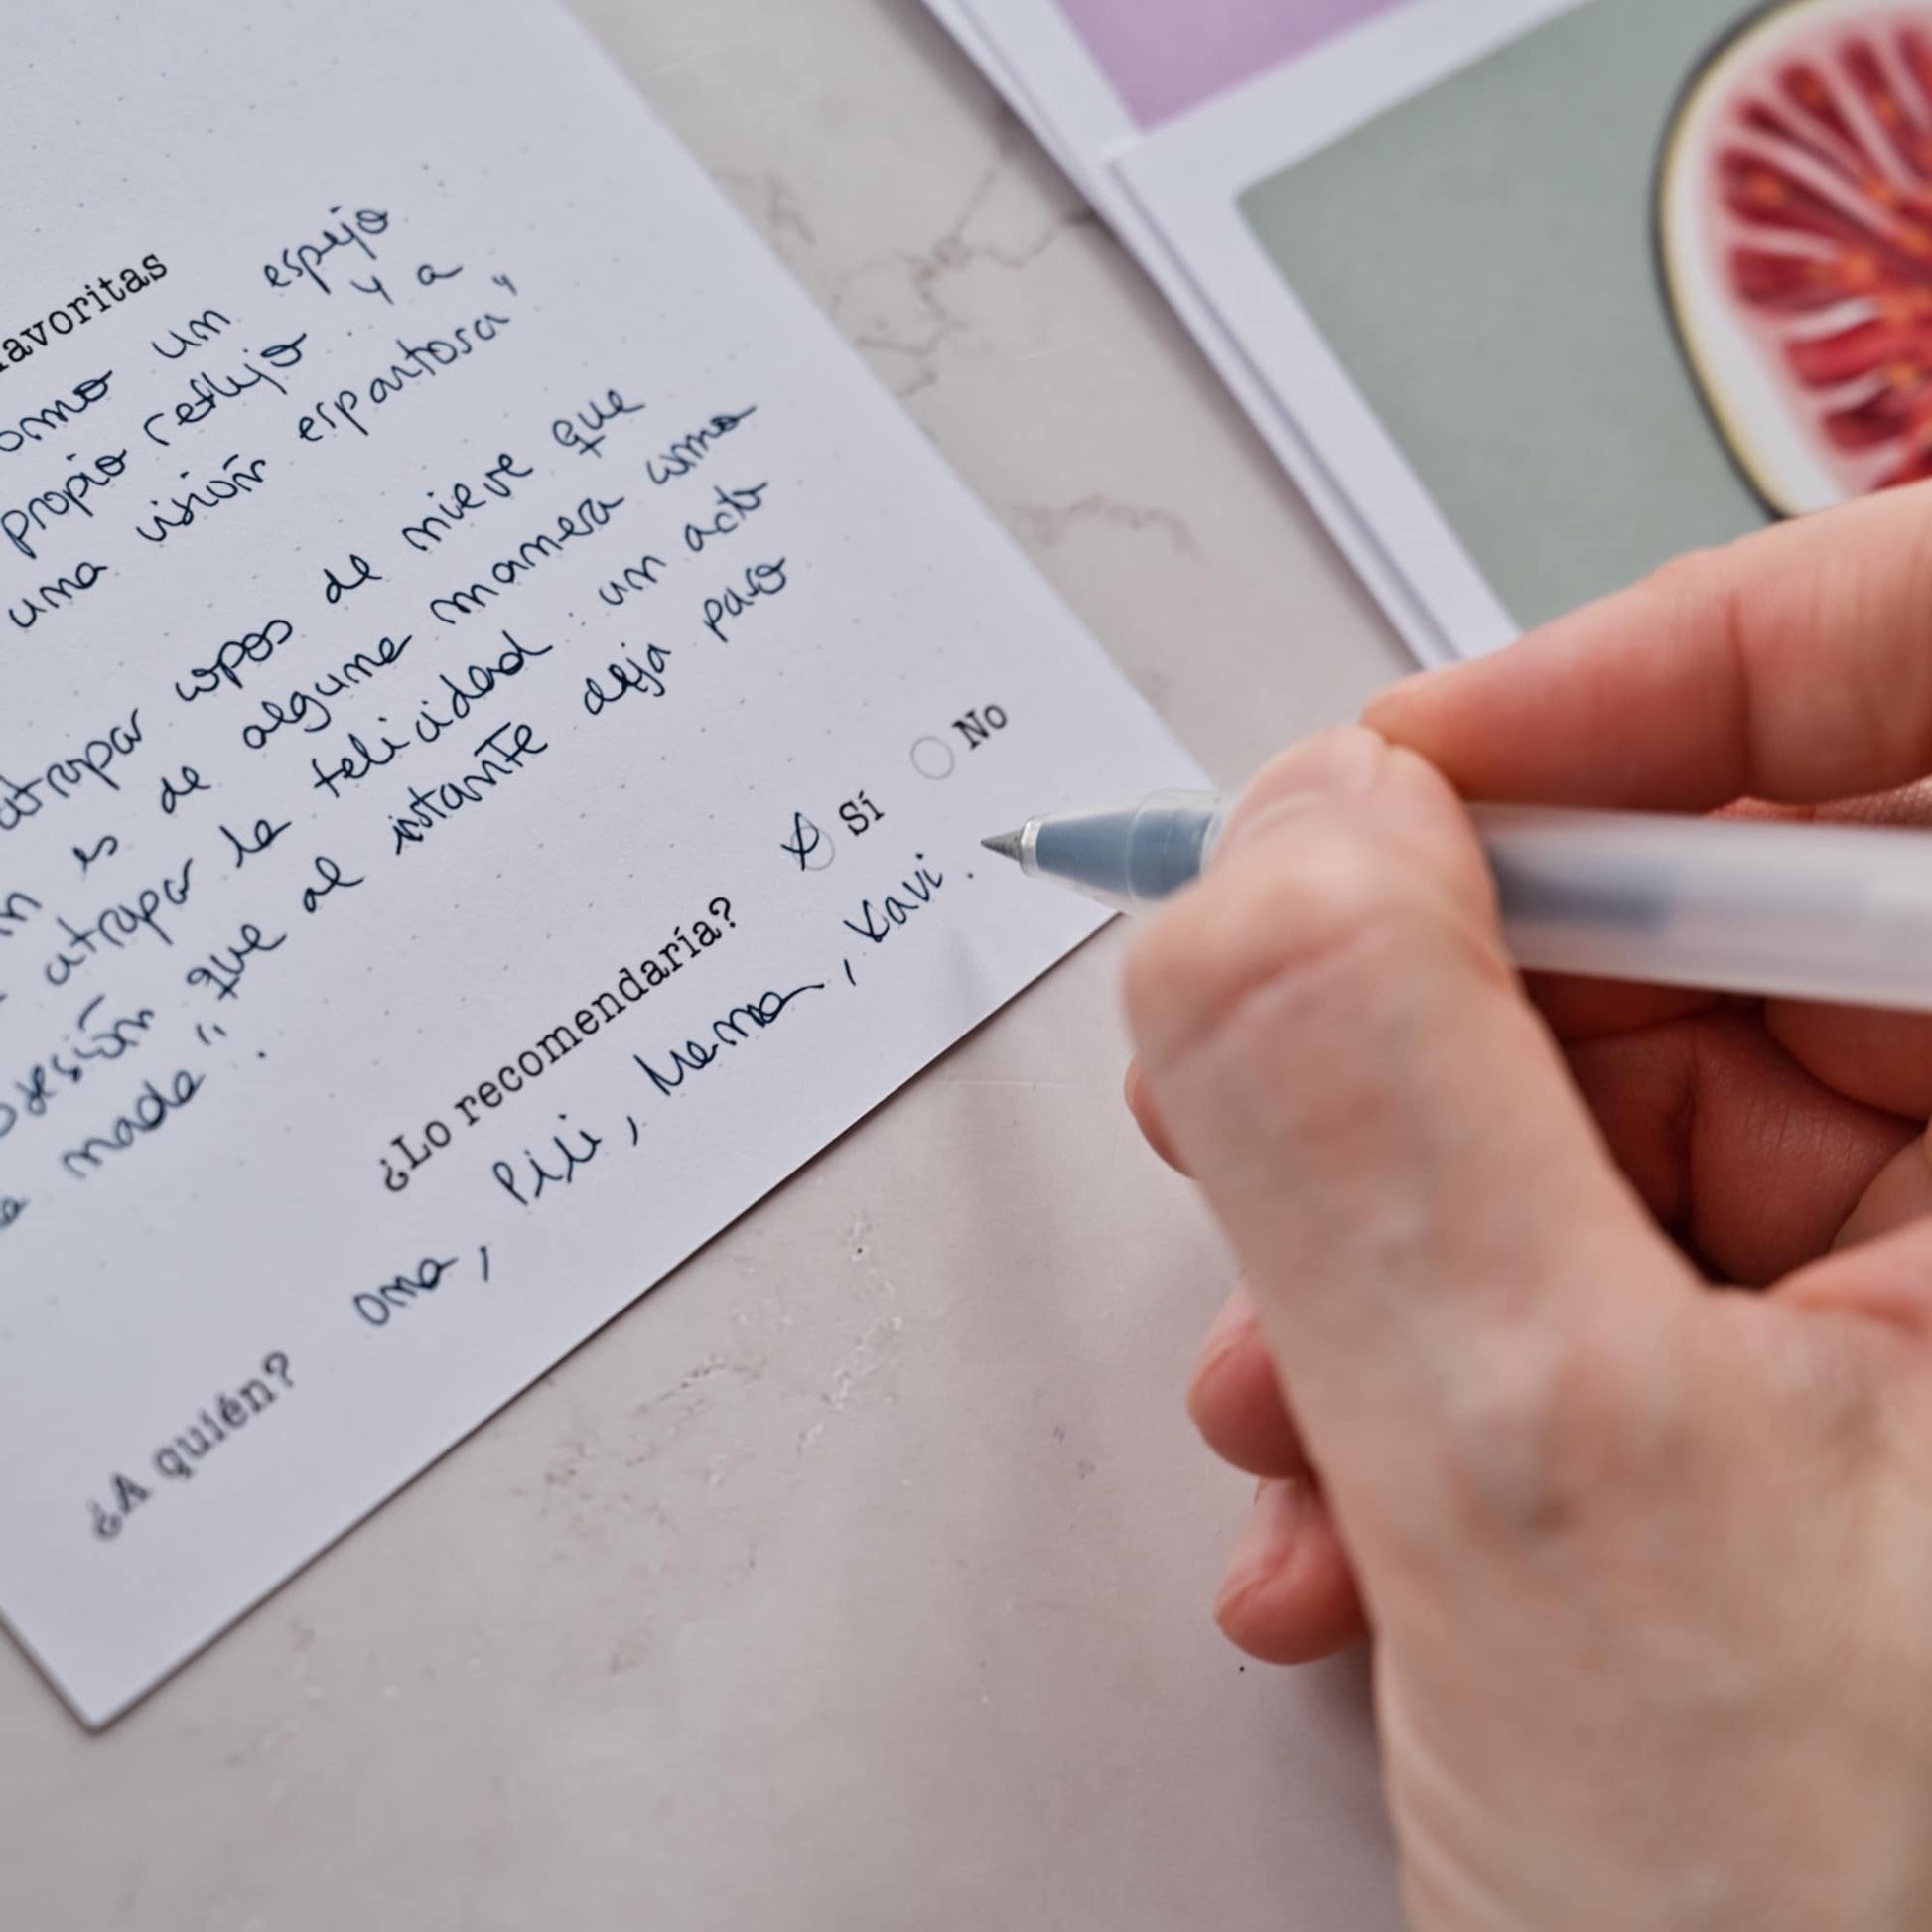 favoritas
como un espejo
propio reflejo y a
una visión espantosa"
atrapar copos de nieve que
es de alguna manera como
atrapar la felicidad: un acto
posesión que al instante deja paso
nada".
¿Lo recomendaría? Sí No
¿A quién? Oma, Pili, Mema, Xavi.